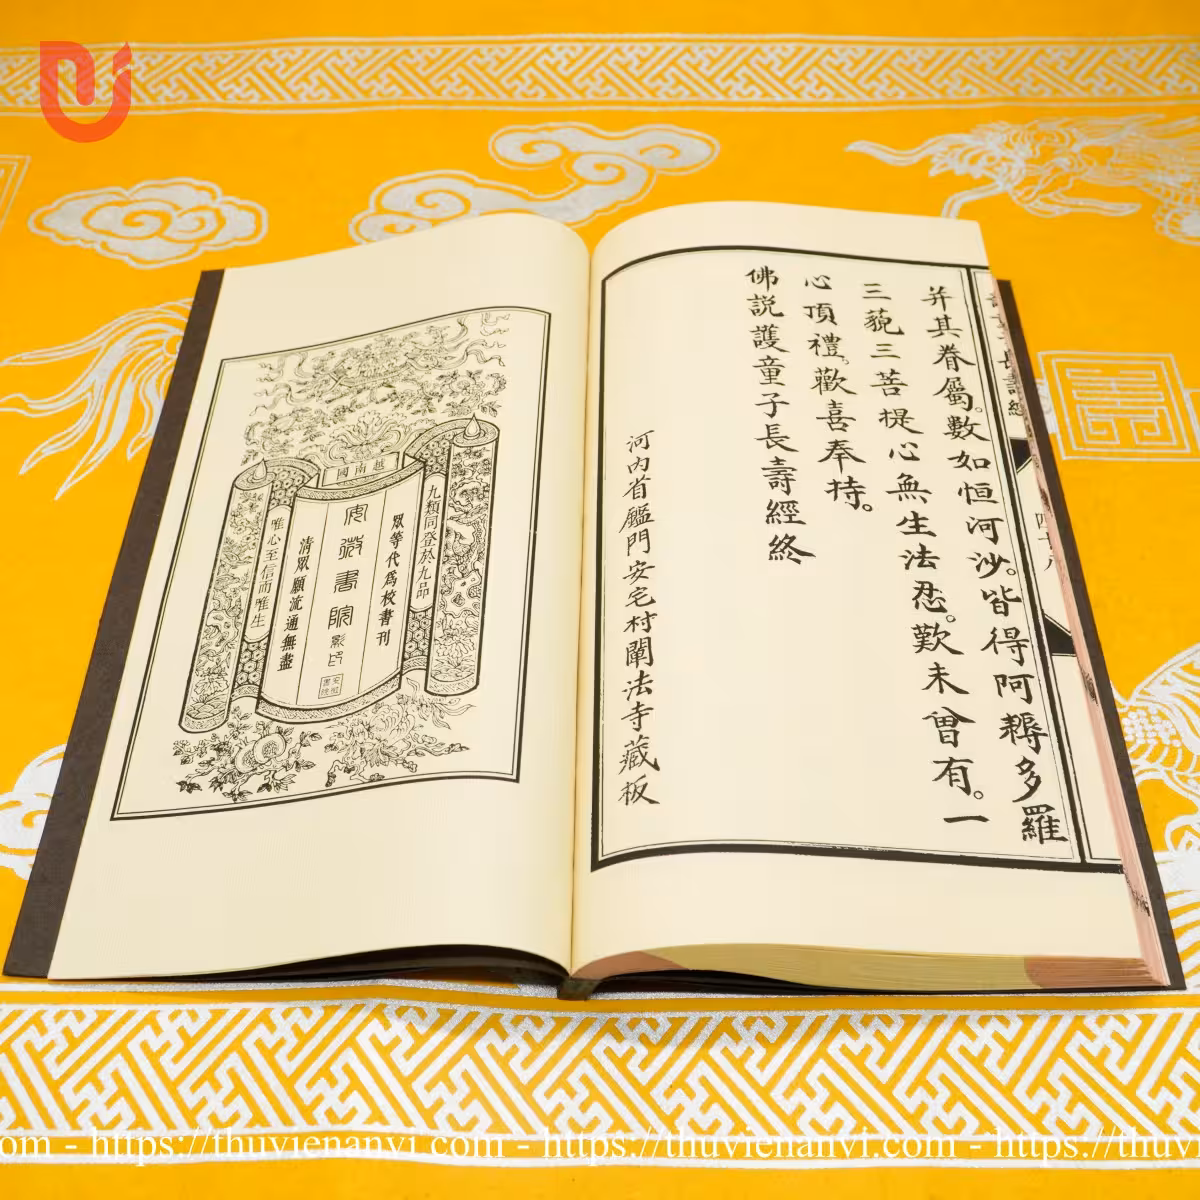 并其眷屬。數如恒河沙。皆得阿耨多羅
三藐三菩提心無生法忍。歎未曾有。一
心頂禮。歡喜奉持。
佛説護童子長壽經終
河内省鑑門安宅村闡法寺藏板
越南國
九類同登於九品
眾等代為校書刊
安微書院影印
清眾願流通無盡
唯心至信而唯生
https://thuvienanvi.com - https://thuvienanvi.com - https://thuv